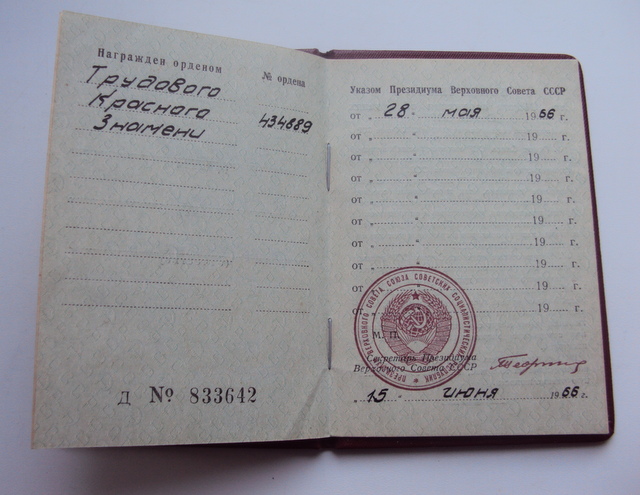 Награжден орденом
№ ордена
Трудового
Красного
Знамени 434889
Д № 833642
Указом Президиума Верховного Совета СССР
от „ 28 “ мая 1966 г.
от „ “ 19 г.
от „ “ 19 г.
от „ “ 19 г.
от „ “ 19 г.
от „ “ 19 г.
от „ “ 19 г.
от „ “ 19 г.
от „ “ 19 г.
от „ “ 19 г.
ПРЕЗИДИУМ ВЕРХОВНОГО СОВЕТА СОЮЗА СОВЕТСКИХ СОЦИАЛИСТИЧЕСКИХ РЕСПУБЛИК
М. П.
Секретарь Президиума
Верховного Совета СССР
„ 15 “ июня 1966 г.